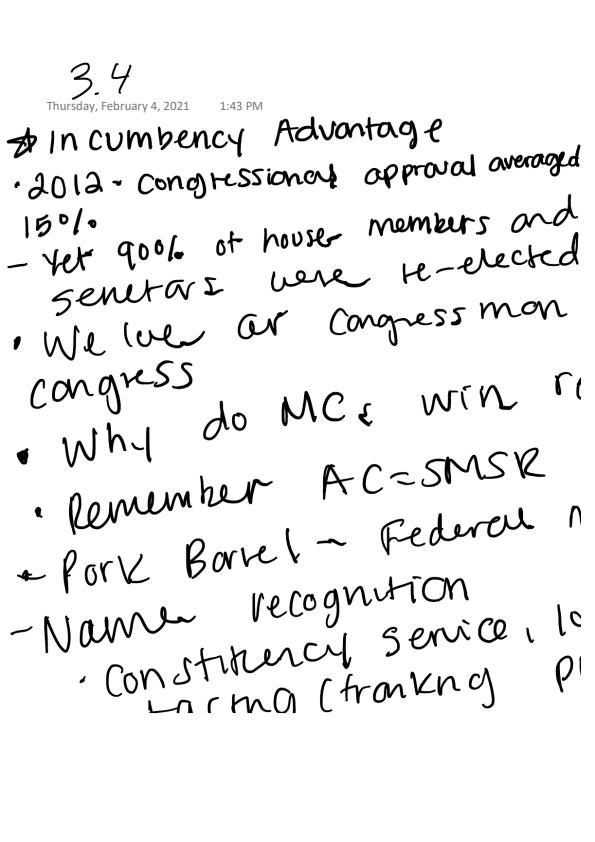 3.4
Thursday, February 4, 2021 1:43 PM
☆ Incumbency Advantage
• 2012 - Congressional approval averaged
15%
- Yet 90% of house members and
senetars were re-elected
• We love our Congressman
congress
• Why do MCs win re
• Remember AC=SMSR
* Pork Barrel - Federal
- Name recognition
• Constituency service,
(frankng